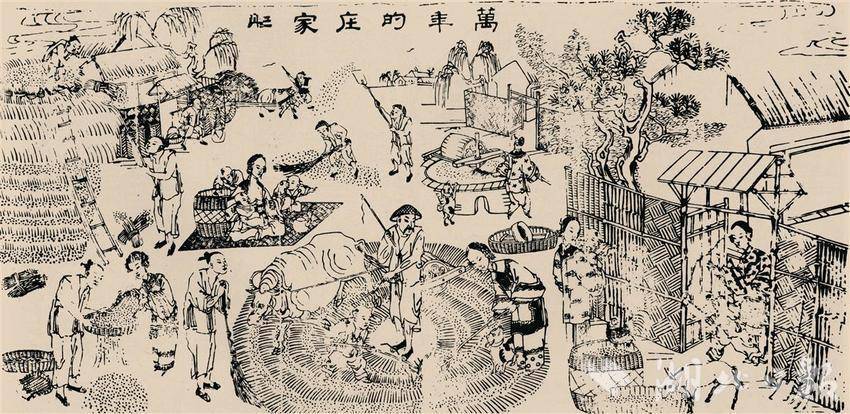 萬年的庄家忙